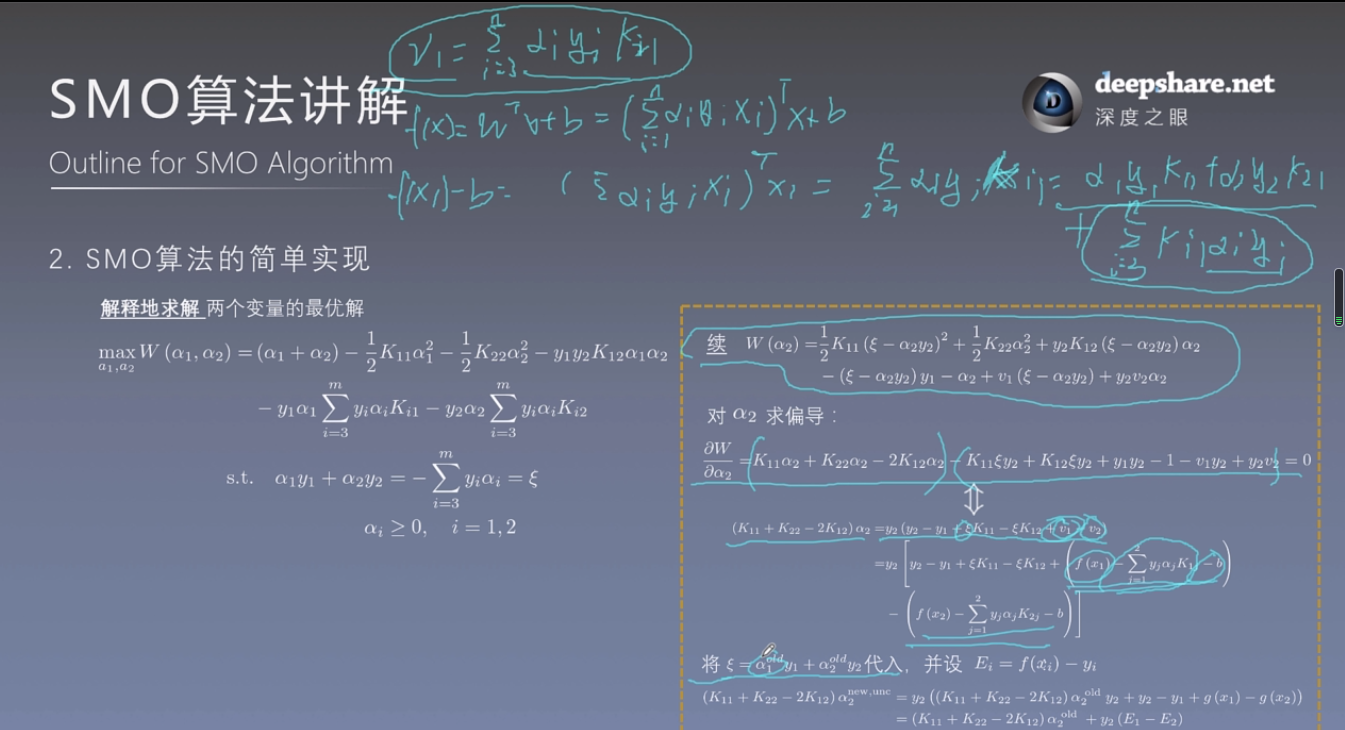 v₁ = Σ_{i=3}^{n} αᵢyᵢKᵢ₁
SMO算法讲解
Outline for SMO Algorithm
deepshare.net
深度之眼
f(x) = wᵀx + b = (Σ_{i=1}^{n} αᵢyᵢxᵢ)ᵀx + b
f(x₁) - b = (Σαᵢyᵢxᵢ)ᵀx₁ = Σ_{i=1}^{n} αᵢyᵢKᵢ₁ = α₁y₁K₁₁ + α₂y₂K₂₁
+ Σ_{i=3}^{n} Kᵢ₁αᵢyᵢ
2. SMO算法的简单实现
解释地求解 两个变量的最优解
max_{a₁,a₂} W(α₁, α₂) = (α₁ + α₂) − ½K₁₁α₁² − ½K₂₂α₂² − y₁y₂K₁₂α₁α₂
− y₁α₁ Σ_{i=3}^{m} yᵢαᵢKᵢ₁ − y₂α₂ Σ_{i=3}^{m} yᵢαᵢKᵢ₂
s.t. α₁y₁ + α₂y₂ = − Σ_{i=3}^{m} yᵢαᵢ = ξ
αᵢ ≥ 0, i = 1, 2
续 W(α₂) = ½K₁₁(ξ − α₂y₂)² + ½K₂₂α₂² + y₂K₁₂(ξ − α₂y₂)α₂
− (ξ − α₂y₂)y₁ − α₂ + v₁(ξ − α₂y₂) + y₂v₂α₂
对 α₂ 求偏导：
∂W/∂α₂ = K₁₁α₂ + K₂₂α₂ − 2K₁₂α₂ − K₁₁ξy₂ + K₁₂ξy₂ + y₁y₂ − 1 − v₁y₂ + y₂v₂ = 0
⇕
(K₁₁ + K₂₂ − 2K₁₂)α₂ = y₂(y₂ − y₁ + ξK₁₁ − ξK₁₂ + v₁ − v₂)
= y₂[y₂ − y₁ + ξK₁₁ − ξK₁₂ + (f(x₁) − Σ_{j=1}^{2} yⱼαⱼK₁ⱼ − b)
− (f(x₂) − Σ_{j=1}^{2} yⱼαⱼK₂ⱼ − b)]
将 ξ = α₁^{old}y₁ + α₂^{old}y₂ 代入，并设 Eᵢ = f(xᵢ) − yᵢ
(K₁₁ + K₂₂ − 2K₁₂)α₂^{new,unc} = y₂((K₁₁ + K₂₂ − 2K₁₂)α₂^{old}y₂ + y₂ − y₁ + g(x₁) − g(x₂))
= (K₁₁ + K₂₂ − 2K₁₂)α₂^{old} + y₂(E₁ − E₂)